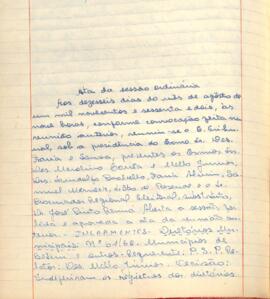 Ata da sessão ordinária
Aos dezesseis dias do mês de agôsto de
um mil novecentos e sessenta e dois, às
nove horas, conforme convocação feita na
reunião anterior, reuniu-se o E. Tribu-
nal, sob a presidência do Exmo. Sr. Des.
Faria e Sousa, presentes os Exmos. Srs.
Des. Merolino e Mello Júnior,
Drs.
Procurador Regional Eleitoral, substituto,
Dr. José Pinto Aberta a sessão, foi
lida e aprovada a ata da reunião an-
terior. - JULGAMENTOS - Diretórios Mu-
nicipais: Nº 61/62. Municípios de
Betim e outros - Requerente: P.S.P. Re-
lator: Des. Mello Júnior. Decisão:
Indeferiram os registros dos diretórios